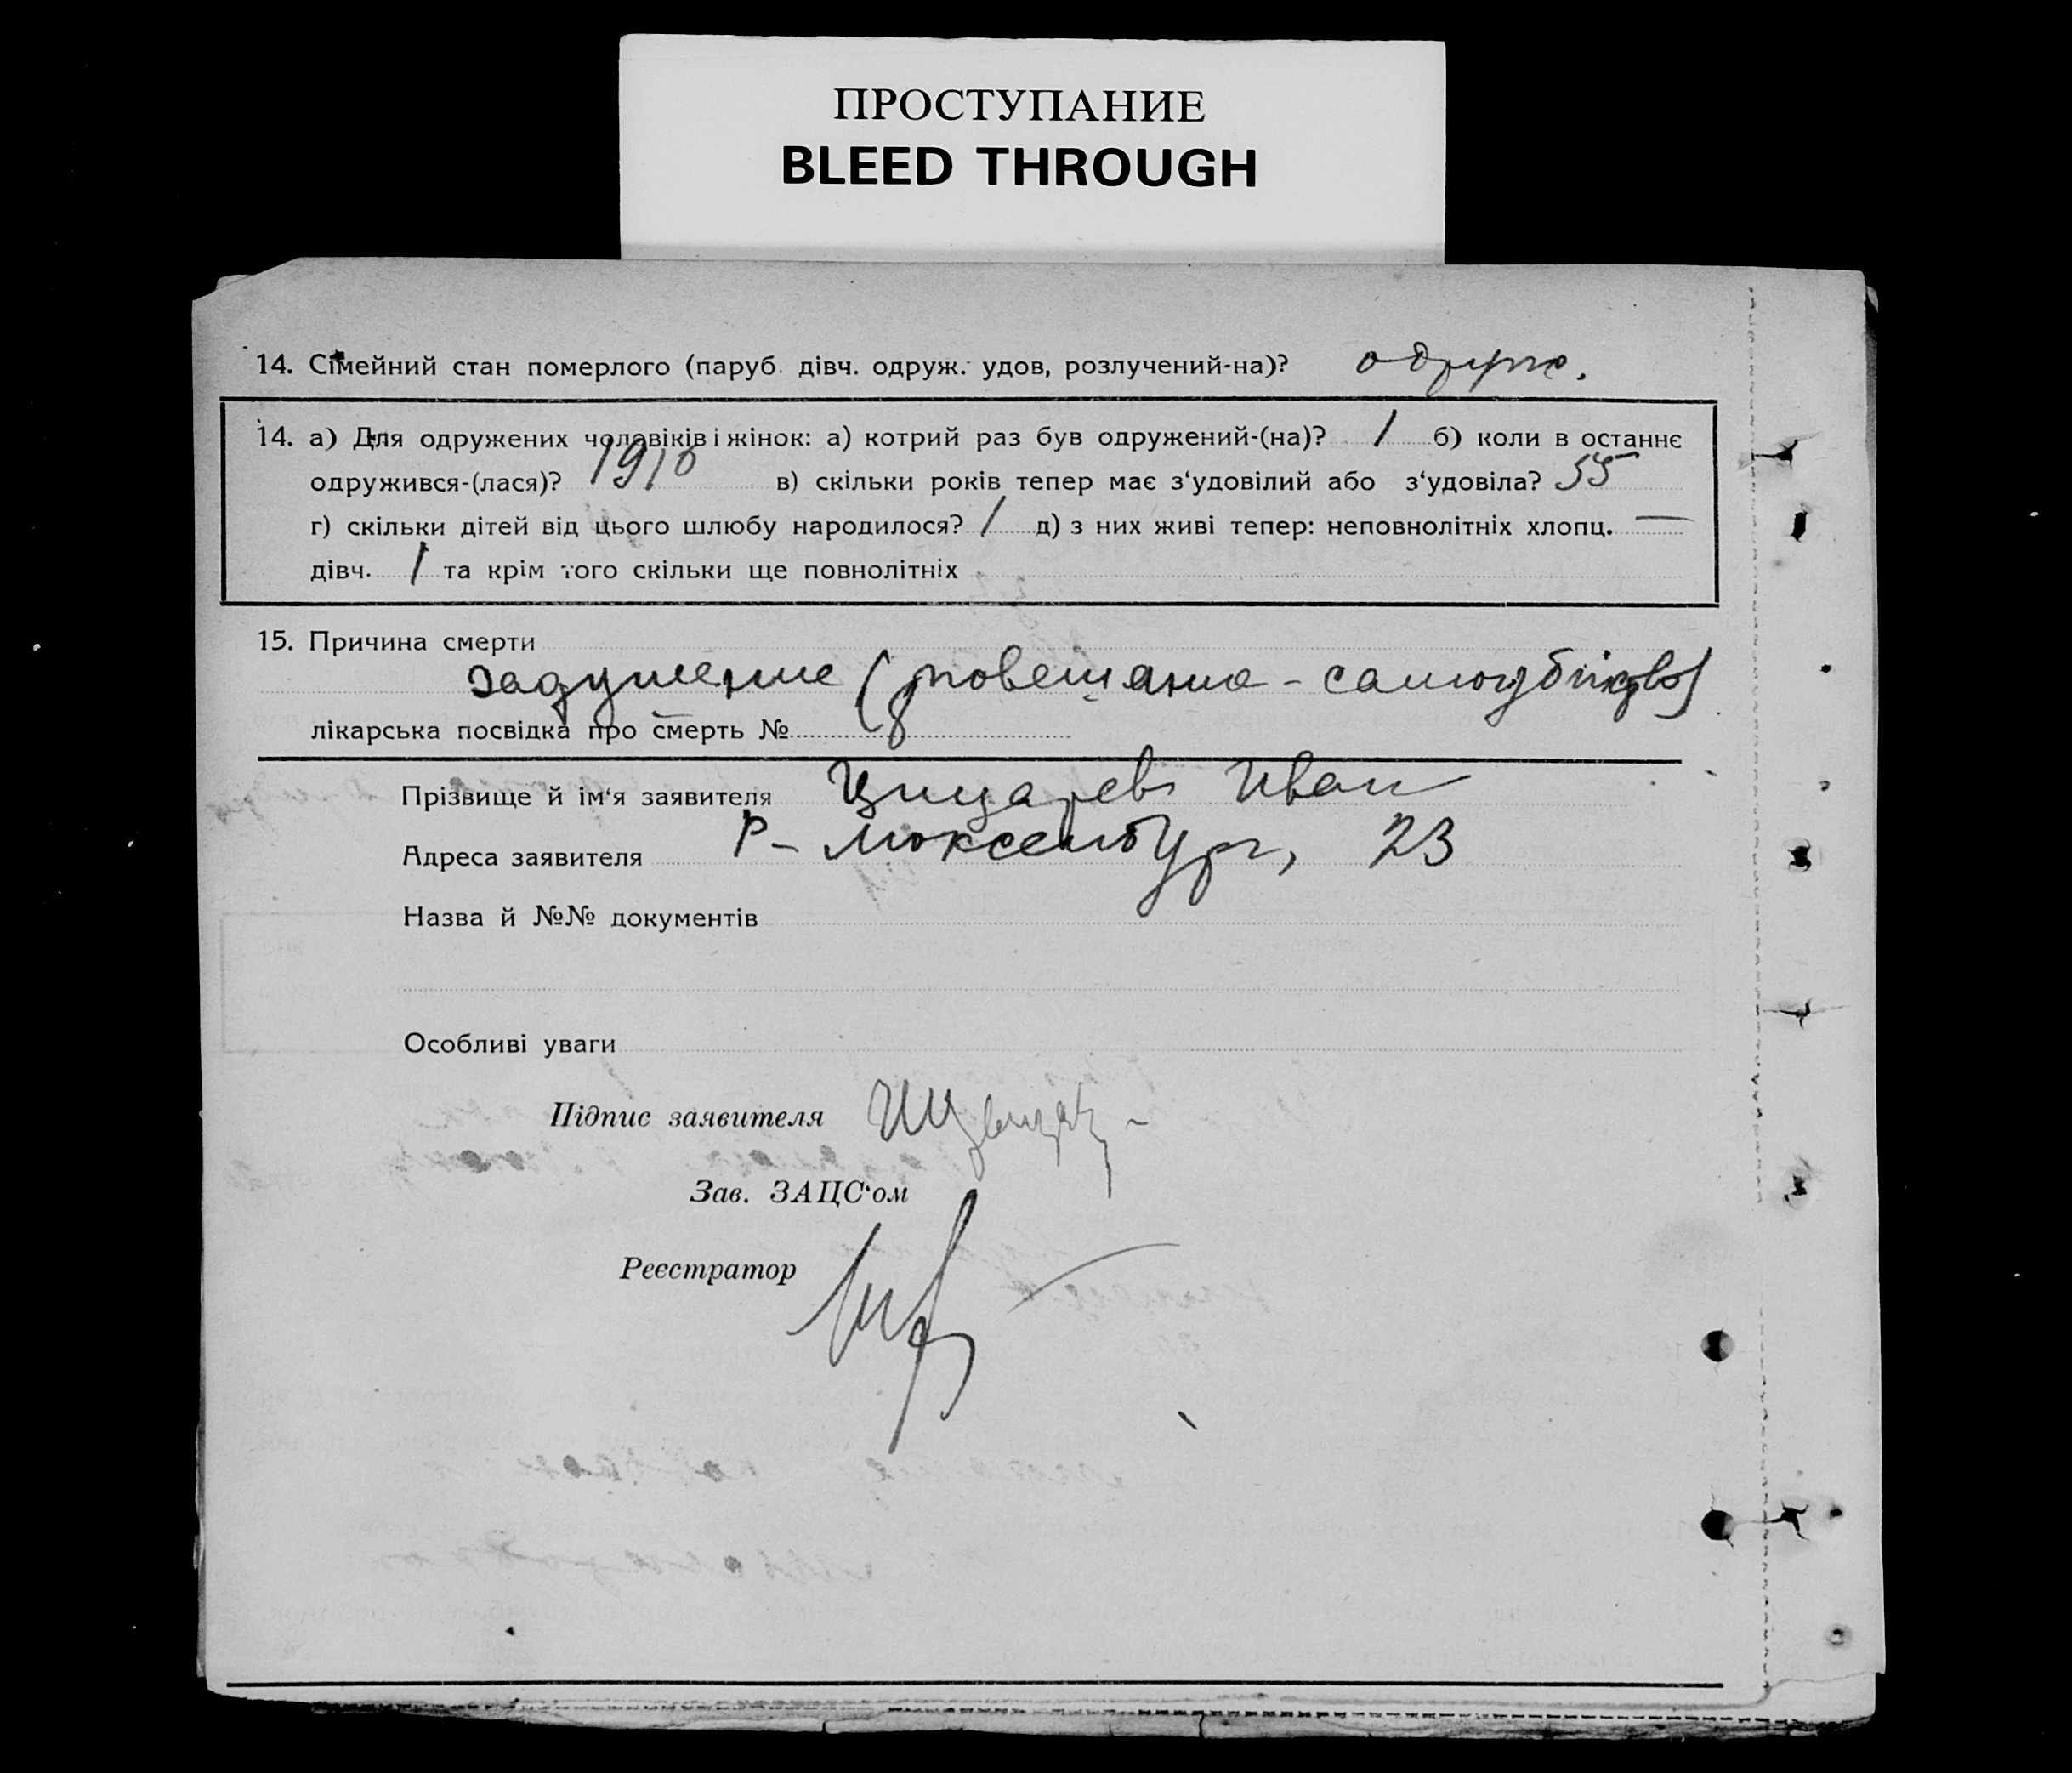 ПРОСТУПАНИЕ
BLEED THROUGH
14. Сімейний стан померлого (паруб. дівч. одруж. удов, розлучений-на)? одруж.
14. а) Для одружених чоловіків і жінок: а) котрий раз був одружений-(на)? 1 б) коли в останнє
одружився-(лася)? 1918 в) скільки років тепер має з‘удовілий або з‘удовіла? 55
г) скільки дітей від цього шлюбу народилося? 1 д) з них живі тепер: неповнолітніх хлопц. —
дівч. 1 та крім того скільки ще повнолітніх
15. Причина смерти
задушение (повешание - самоубийство)
лікарська посвідка про смерть № 8
Прізвище й ім‘я заявителя Цицарев Иван
Адреса заявителя Р-Люксембург, 23
Назва й №№ документів
Особливі уваги
Підпис заявителя
Зав. ЗАЦС‘ом
Реєстратор